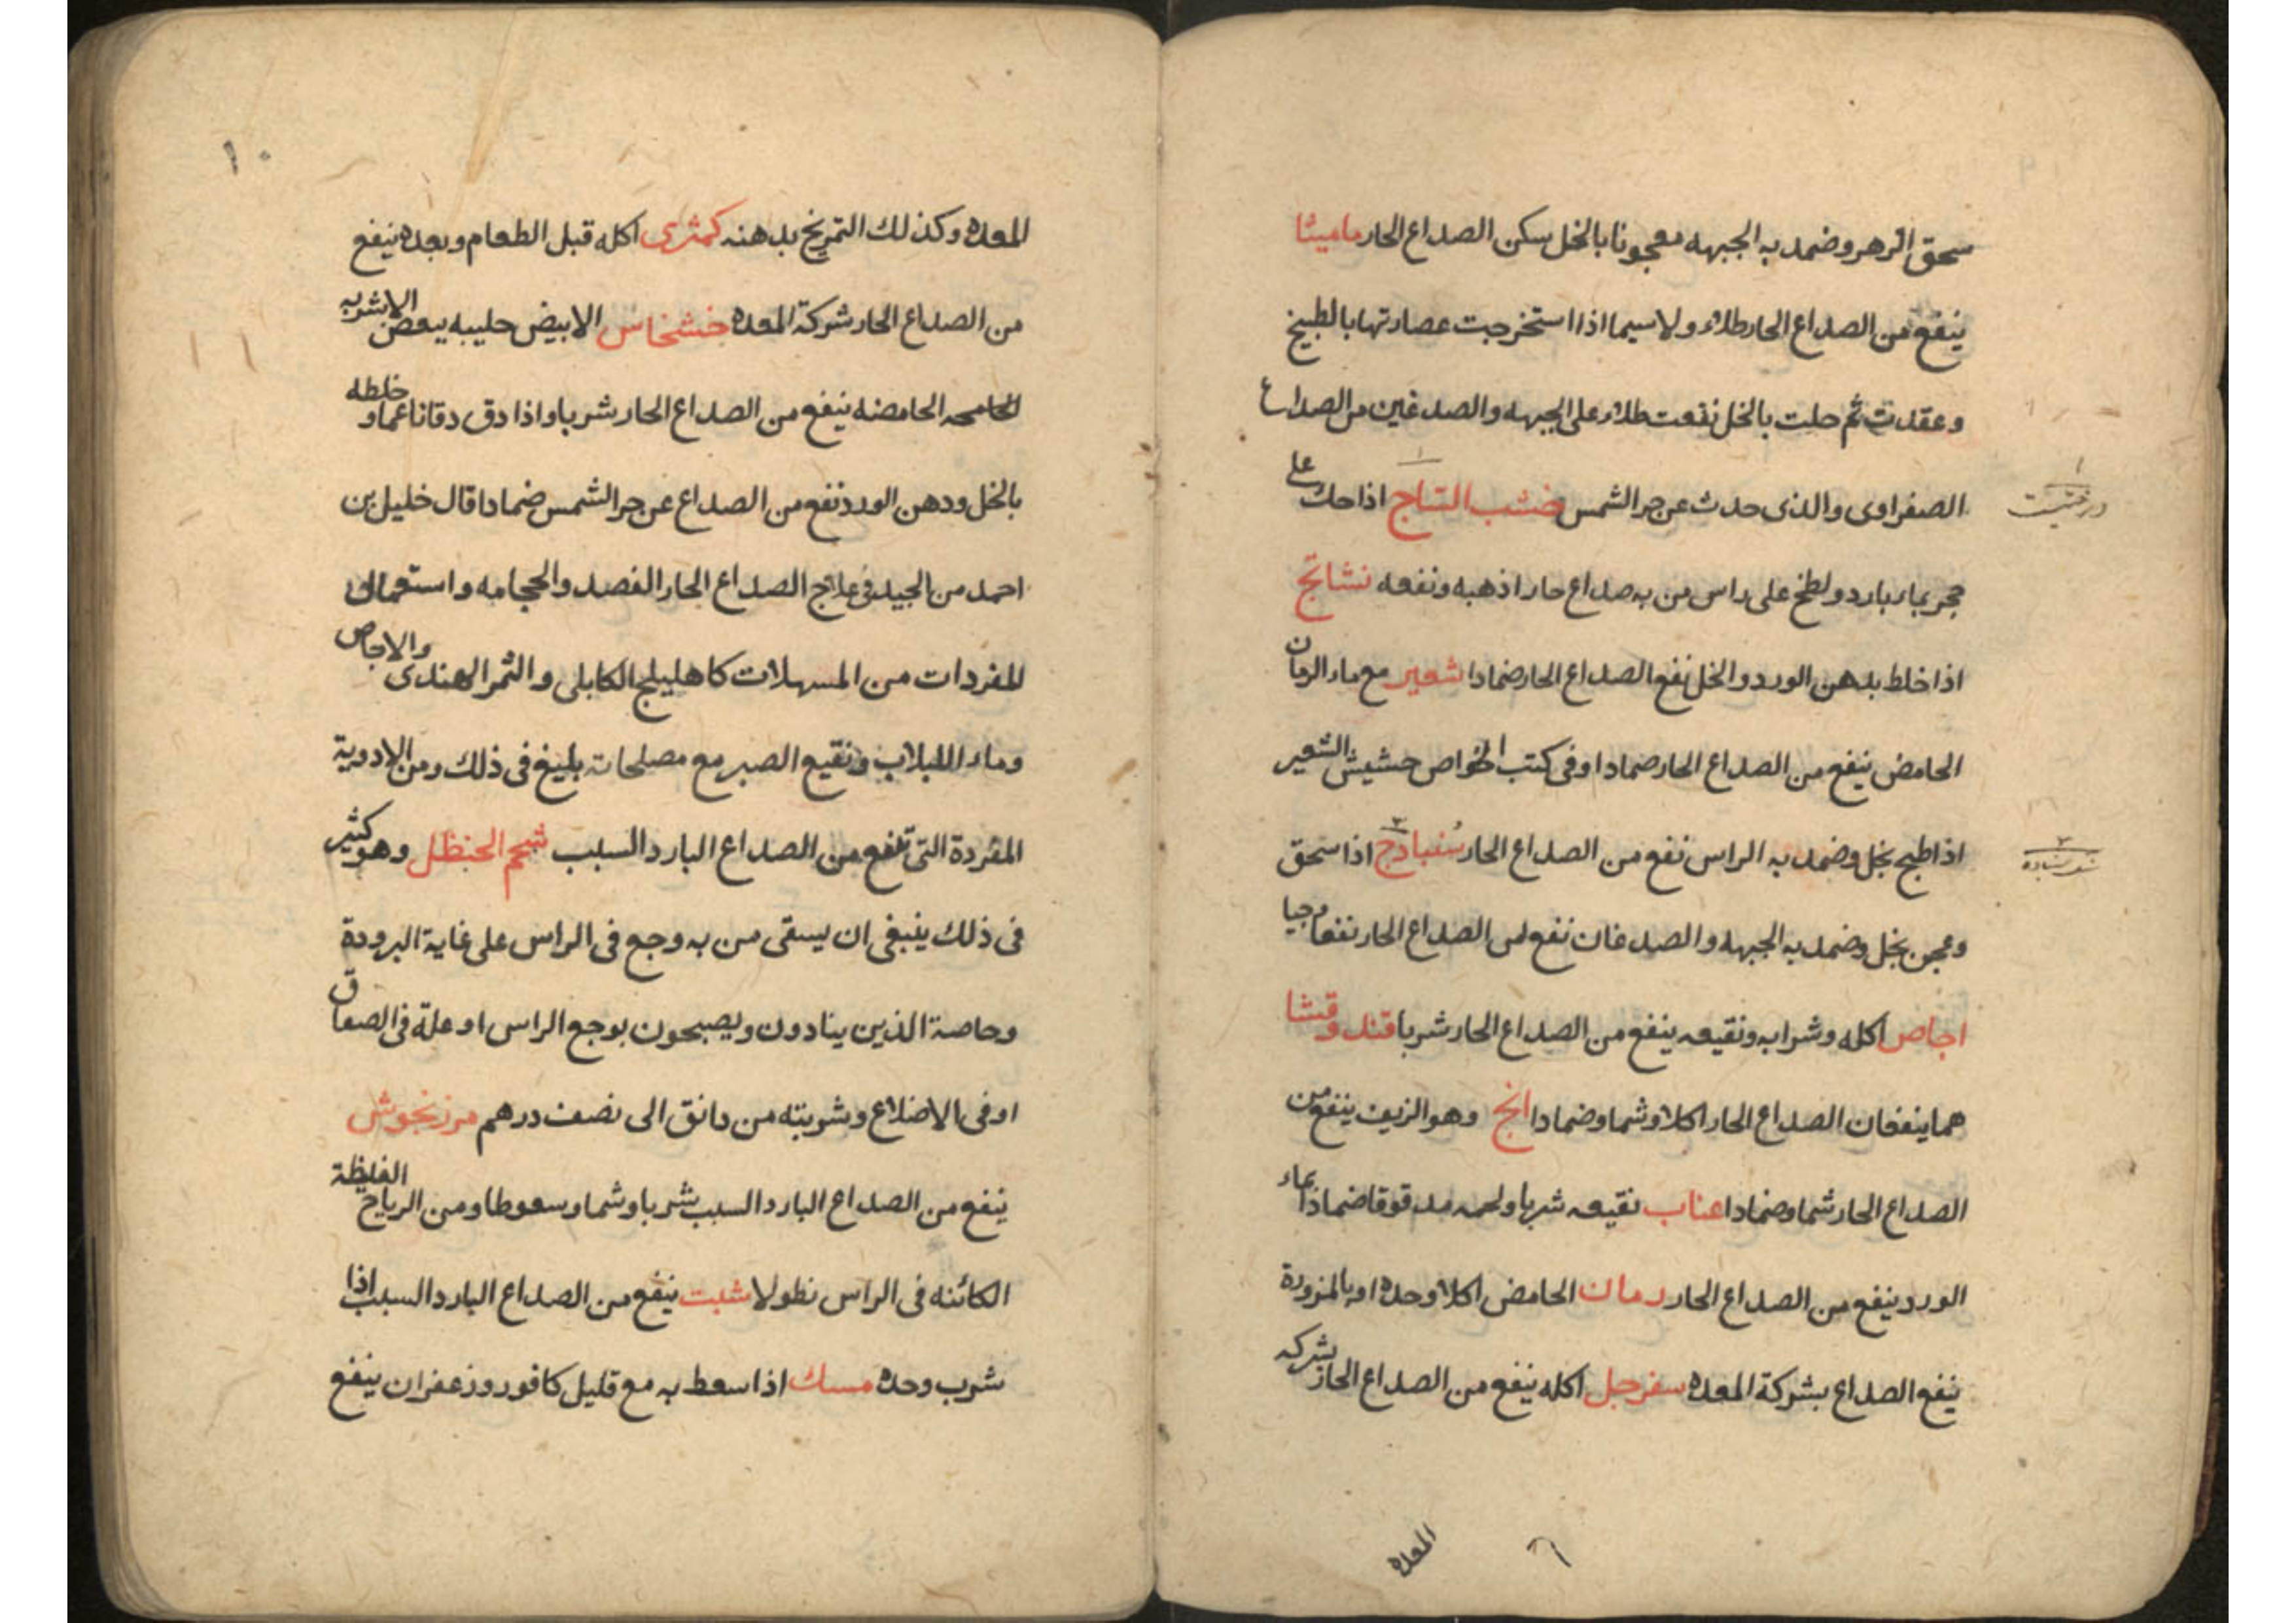 سحق الزهر وضمد به الجبهه معجونا بالخل سكن الصداع الحار ماميثا
ينفع من الصداع الحار طلاء ولا سيما اذا استخرجت عصارتها بالطبيخ
وعقدت ثم حلت بالخل نفعت طلاء على الجبهه والصدغين من الصداع
الصفراوى والذى حدث عن حر الشمس خشب الساج اذا حك على
حجر بماء بارد ولطخ على راس من به صداع حار اذهبه ونفعه نشاتج
اذا خلط بدهن الورد والخل نفع الصداع الحار ضمادا شعير مع ماء الرمان
الحامض ينفع من الصداع الحار ضمادا وفى كتب الخواص حشيش الشعير
اذا طبخ بخل وضمد به الراس نفع من الصداع الحار سنبادج اذا سحق
وعجن بخل وضمد به الجبهه والصدغان نفع من الصداع الحار نفعا
اجاص اكله وشرابه ونقيعه ينفع من الصداع الحار شربا قند وقثا
هما ينفعان الصداع الحار اكلا وشما وضمادا انج وهو الزيف ينفع من
الصداع الحار شما وضمادا عناب نقيعه شربا ولحمه مدقوقا ضمادا بماء
الورد ينفع من الصداع الحار رمان الحامض اكلا وحده او بالمزورة
ينفع الصداع بشركة المعده سفرجل اكله ينفع من الصداع الحار بشركه
المعده
٦
١٠
المعده وكذلك التمريخ بدهنه كمثرى اكله قبل الطعام وبعده ينفع
من الصداع الحار شركة المعده خشخاش الابيض حليبه ببعض الاشربه
الحامضه ينفع من الصداع الحار شربا واذا دق دقا ناعما وخلطه
بالخل ودهن الورد نفع من الصداع عن حر الشمس ضمادا قال خليل بن
احمد من الجيد فى علاج الصداع الحار الفصد والحجامه واستعمال
المفردات من المسهلات كاهليلج الكابلى والثمر الهندى والاجاص
وماء اللبلاب ونقيع الصبر مع مصلحاته بليغ فى ذلك ومن الادوية
المفردة التى تنفع من الصداع البارد السبب شحم الحنظل وهو كثير
فى ذلك ينبغى ان يسقى من به وجع فى الراس على غاية البرودة
وحاصة الذين ينادون ويصبحون بوجع الراس او علة فى الصفاق
اوفى الاضلاع وشربته من دانق الى نصف درهم مرزنجوش
ينفع من الصداع البارد السبب شربا وشما وسعوطا ومن الرياح الغليظة
الكائنه فى الراس نطولا شبت ينفع من الصداع البارد السبب اذا
شرب وحده مسك اذا سعط به مع قليل كافور وزعفران ينفع